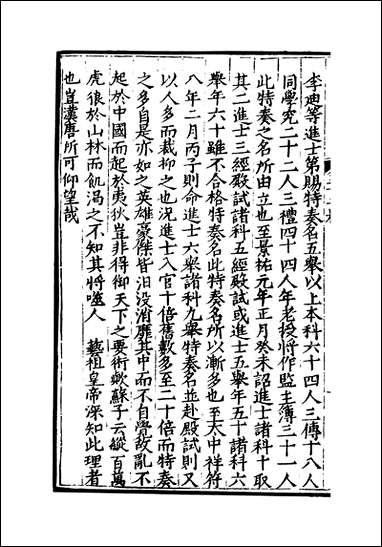 李迪等進士第賜特奏名五舉以上本科六十四人三傳十八人
同學究二十二人三禮四十四人年老授將作監主簿三十一人
此特奏之名所由立也至景祐元年正月癸未詔進士諸科十取
其二進士三經殿試諸科五經殿試或進士五舉年五十諸科六
舉年六十雖不合格特奏名此特奏名所以漸多也至大中祥符
八年二月丙子則命進士六舉諸科九舉特奏名並赴殿試則又
以人多而裁抑之也況進士入官十倍舊數多至二十倍而特奏
之多自是亦如之英雄豪傑皆汨没消靡其中而不自覺故亂不
起於中國而起於夷狄豈非得御天下之要術歟蘇子云縱百萬
虎狼於山林而飢渴之不知其將噬人　藝祖皇帝深知此理者
也豈漢唐所可仰望哉